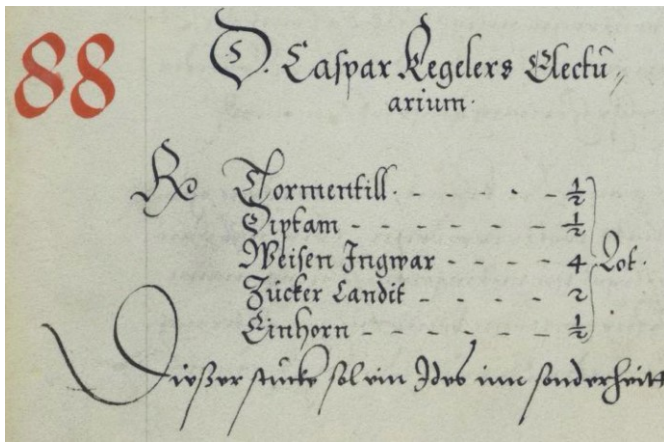 88
D. Caspar Kegelers Electu„
arium.
Rc Tormentill. - - - - - ½
Diptam - - - - - - ½
Weisen Ingwar - - - - 4 Lot.
Zucker Candit - - - - 2
Einhorn - - - - - - ½
Dießer stucke sol ein Ides inn sonderheitt